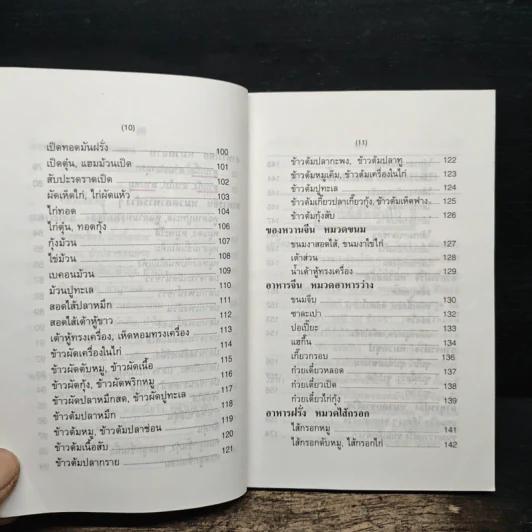 (10)
เป็ดทอดมันฝรั่ง 100
เป็ดตุ๋น, แฮมม้วนเป็ด 101
สับปะรดราดเป็ด 102
ผัดเห็ดไก่, ไก่ผัดแห้ว 103
ไก่ทอด 104
ไก่ตุ๋น, ทอดกุ้ง 106
กุ้งม้วน 107
ไข่ม้วน 108
เบคอนม้วน 109
ม้วนปูทะเล 110
สอดไส้ปลาหมึก 111
สอดไส้เต้าหู้ขาว 112
เต้าหู้ทรงเครื่อง, เห็ดหอมทรงเครื่อง 113
ข้าวผัดเครื่องในไก่ 114
ข้าวผัดตับหมู, ข้าวผัดเนื้อ 115
ข้าวผัดกุ้ง, ข้าวผัดพริกหมู 116
ข้าวผัดปลาหมึกสด, ข้าวผัดปูทะเล 117
ข้าวต้มปลาหมึก 118
ข้าวต้มหมู, ข้าวต้มปลาช่อน 119
ข้าวต้มเนื้อสับ 120
ข้าวต้มปลากราย 121
(11)
ข้าวต้มปลากะพง, ข้าวต้มปลาทู 122
ข้าวต้มหมูเค็ม, ข้าวต้มเครื่องในไก่ 123
ข้าวต้มปูทะเล 124
ข้าวต้มเกี๊ยวปลาเกี๊ยวกุ้ง, ข้าวต้มเห็ดฟาง 125
ข้าวต้มกุ้งสับ 126
ของหวานจีน หมวดขนม
ขนมงาสอดไส้, ขนมงาไข่ไก่ 127
เต้าส่วน 128
น้ำเต้าหู้ทรงเครื่อง 129
อาหารจีน หมวดอาหารว่าง
ขนมจีบ 130
ซาละเปา 132
ปอเปี๊ยะ 133
แฮ่กึ๊น 134
เกี๊ยวกรอบ 136
ก๋วยเตี๋ยวหลอด 137
ก๋วยเตี๋ยวเป็ด 138
ก๋วยเตี๋ยวไก่กุ้ง 139
อาหารฝรั่ง หมวดไส้กรอก
ไส้กรอกหมู 141
ไส้กรอกตับหมู, ไส้กรอกไก่ 142